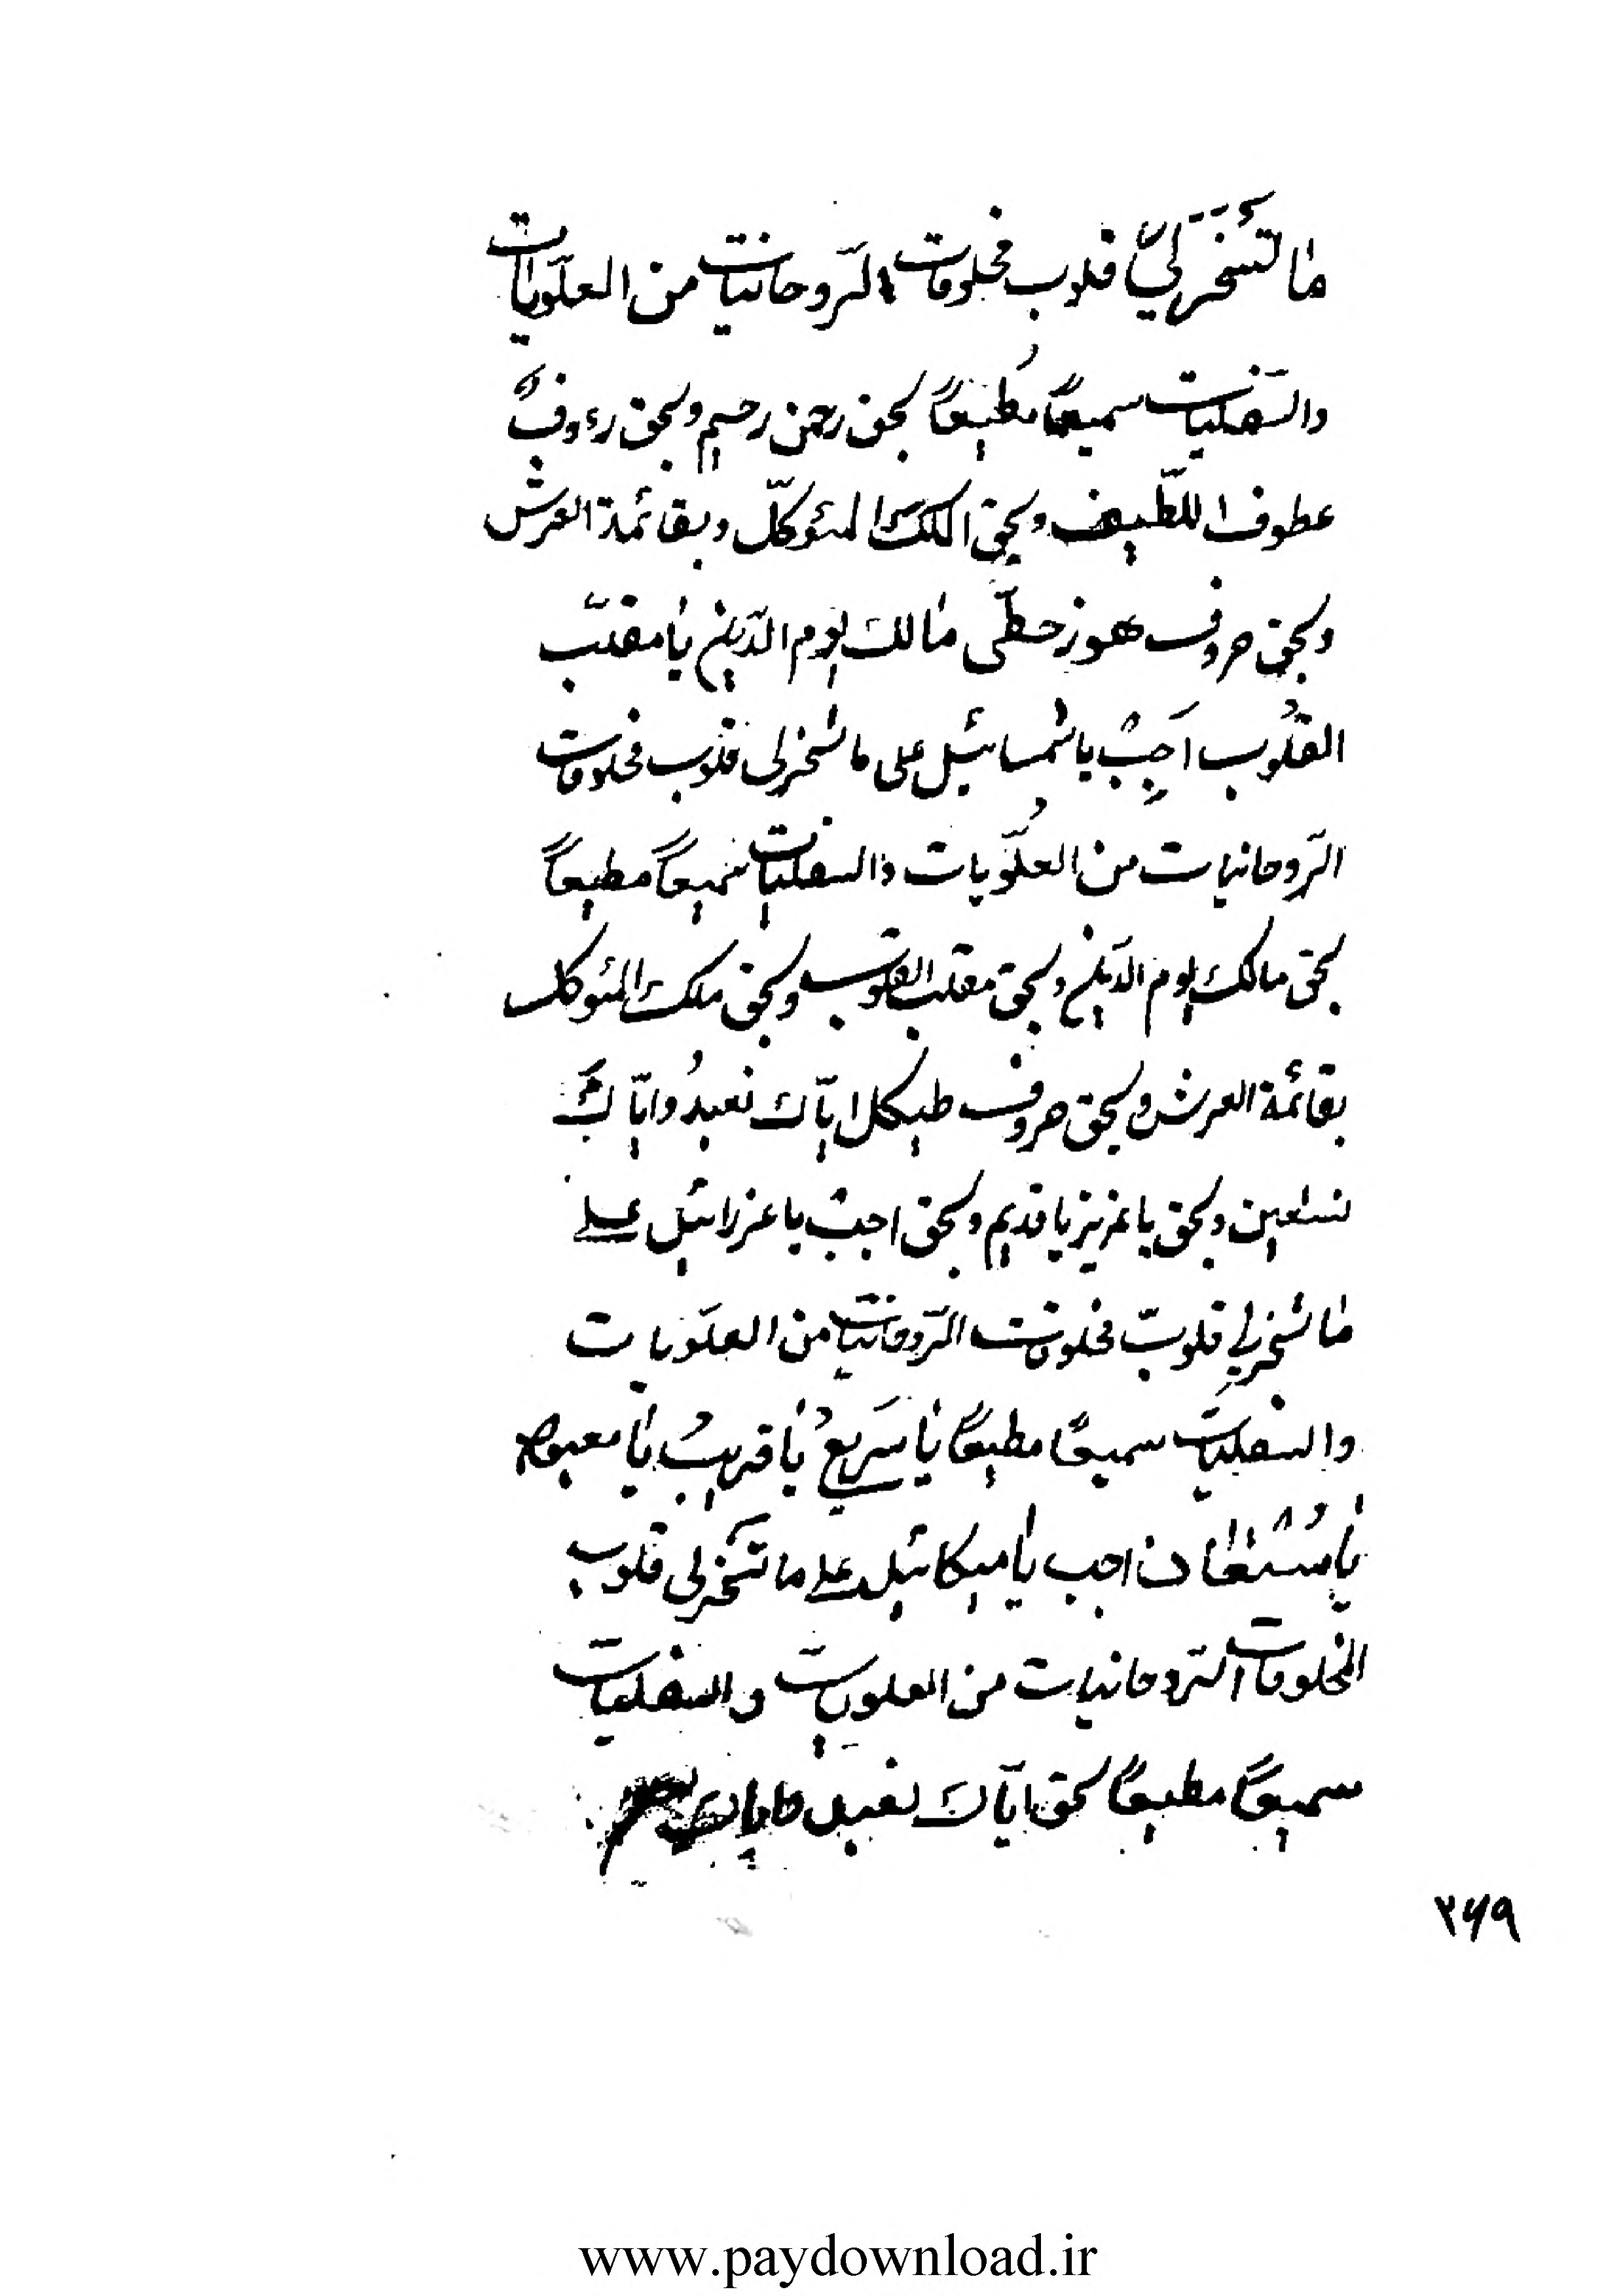 ما تسخر لی قلوب مخلوقات الروحانیات من العلویات
والسفلیات سمیعاً مطیعاً بحق رحمن رحیم وبحق رءوف
عطوف اللطیف وبحق الملک المئوکل وبقائمة العرش
وبحق حروف هوز حطی مالک یوم الدین یا مقلب
القلوب اجب یا شمسائیل علی ما تسخر لی قلوب مخلوقات
الروحانیات من العلویات والسفلیات سمیعاً مطیعاً
بحق مالک یوم الدین وبحق مقلب القلوب وبحق ملک المئوکل
بقائمة العرش وبحق حروف طیکل ایاک نعبد وایاک
نستعین وبحق یا عزیز یا قدیم وبحق اجب یا عزرائیل علی
ما تسخر لی قلوب مخلوقات الروحانیات من العلویات
والسفلیات سمیعاً مطیعاً یا سریع یا قریب یا معبود
یا مستعان اجب یا میکائیل علی ما تسخر لی قلوب
المخلوقات الروحانیات من العلویات والسفلیات
سمیعاً مطیعاً بحق ایاک نعبد
۲۶۹
www.paydownload.ir